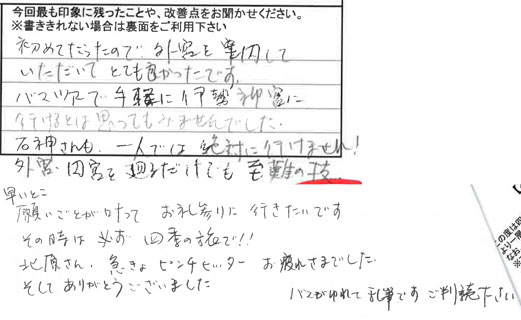 今回最も印象に残ったことや、改善点をお聞かせください。
※書ききれない場合は裏面をご利用下さい
初めてだったので 外宮を案内して
いただいて とても良かったです。
バスツアーで手軽に伊勢神宮に
行けるとは思ってもみませんでした。
石神さんも、一人では絶対に行けません!
外宮・内宮を廻るだけでも至難の技。
早いとこ
願いごとが叶って お礼参りに行きたいです
その時は必ず 四季の旅で!!
北原さん、急きょピンチヒッター お疲れさまでした。
そしてありがとうございました
バスがゆれて乱筆です ご判読下さい